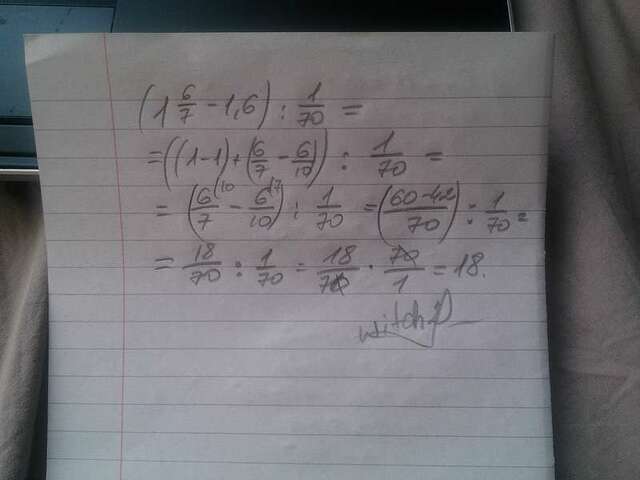 (1 6/7 - 1,6) : 1/70 =
= ((1-1) + (6/7 - 6/10)) : 1/70 =
= (6/7^(10 - 6/10^(7) : 1/70 = (60-42/70) : 1/70 =
= 18/70 : 1/70 = 18/70 · 70/1 = 18.